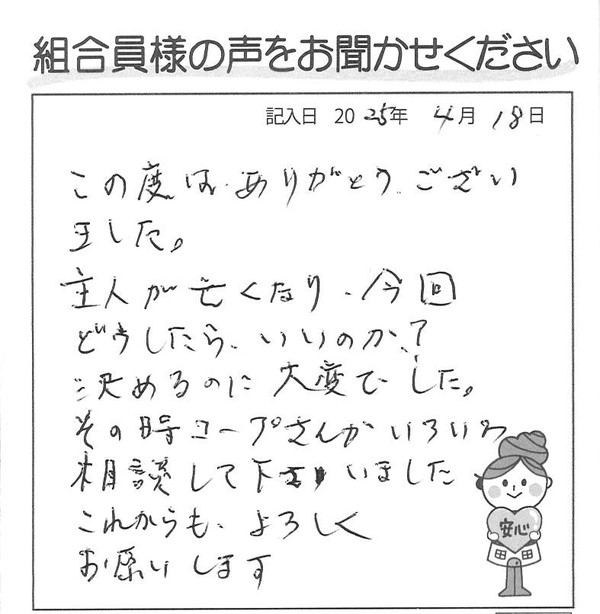 組合員様の声をお聞かせください
記入日 2025年 4月 18日
この度は、ありがとうござい
ました。
主人が亡くなり、今回
どうしたら、いいのか?
決めるのに大変でした。
その時コープさんがいろいろ
相談して下さいました
これからも、よろしく
お願いします
安心